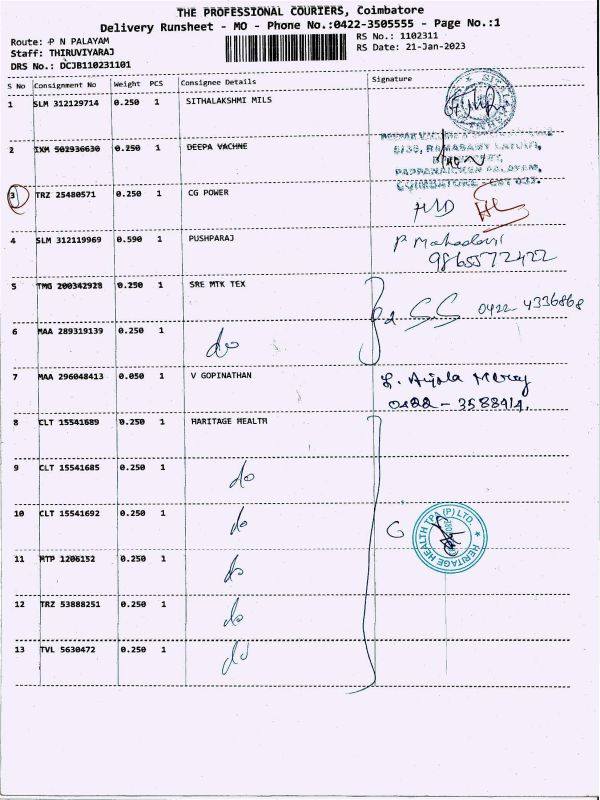 THE PROFESSIONAL COURIERS, Coimbatore
Delivery Runsheet - MO - Phone No.:0422-3505555 - Page No.:1
Route: P N PALAYAM
RS No.: 1102311
Staff: THIRUVIYARAJ
RS Date: 21-Jan-2023
DRS No.: DCJB110231101
S No Consignment No Weight PCS Consignee Details Signature
1 SLM 312129714 0.250 1 SITHALAKSHMI MILS
2 IXM 502936630 0.250 1 DEEPA VACHNE
PAPPANAICKEN PALAYAM,
COIMBATORE
3 TRZ 25480571 0.250 1 CG POWER
4 SLM 312119969 0.590 1 PUSHPARAJ
P Mahadevi
9865572422
5 TMG 200342928 0.250 1 SRE MTK TEX
0422 4336868
6 MAA 289319139 0.250 1 do
7 MAA 296048413 0.050 1 V GOPINATHAN
0422 - 3588914.
8 CLT 15541689 0.250 1 HARITAGE HEALTH
9 CLT 15541685 0.250 1 do
10 CLT 15541692 0.250 1 do
HERITAGE HEALTH TPA (P) LTD.
11 MTP 1206152 0.250 1 do
12 TRZ 53888251 0.250 1 do
13 TVL 5630472 0.250 1 do